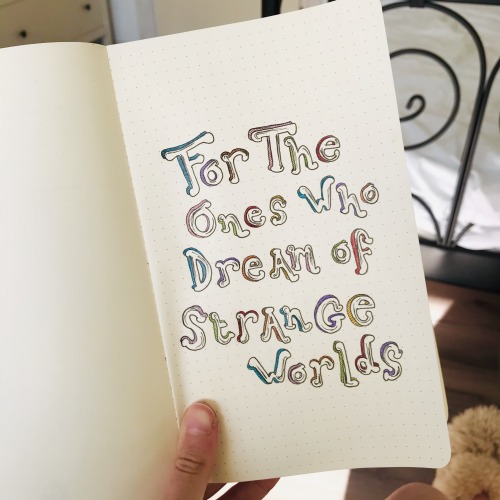 For The
Ones Who
Dream of
Strange
Worlds